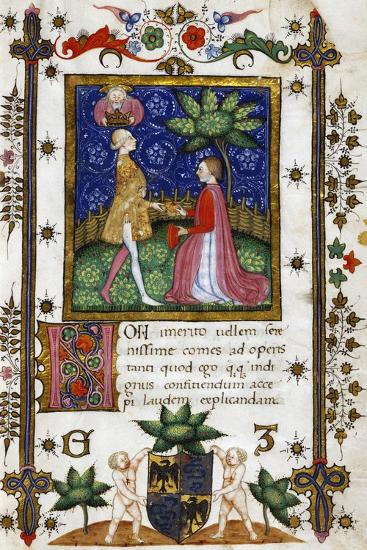 NON imerito uellem sere
nissime comes ad operis
tanti quod ego q.q. indi
gnus conficiendum acce
pi laudem explicandam.
G Z